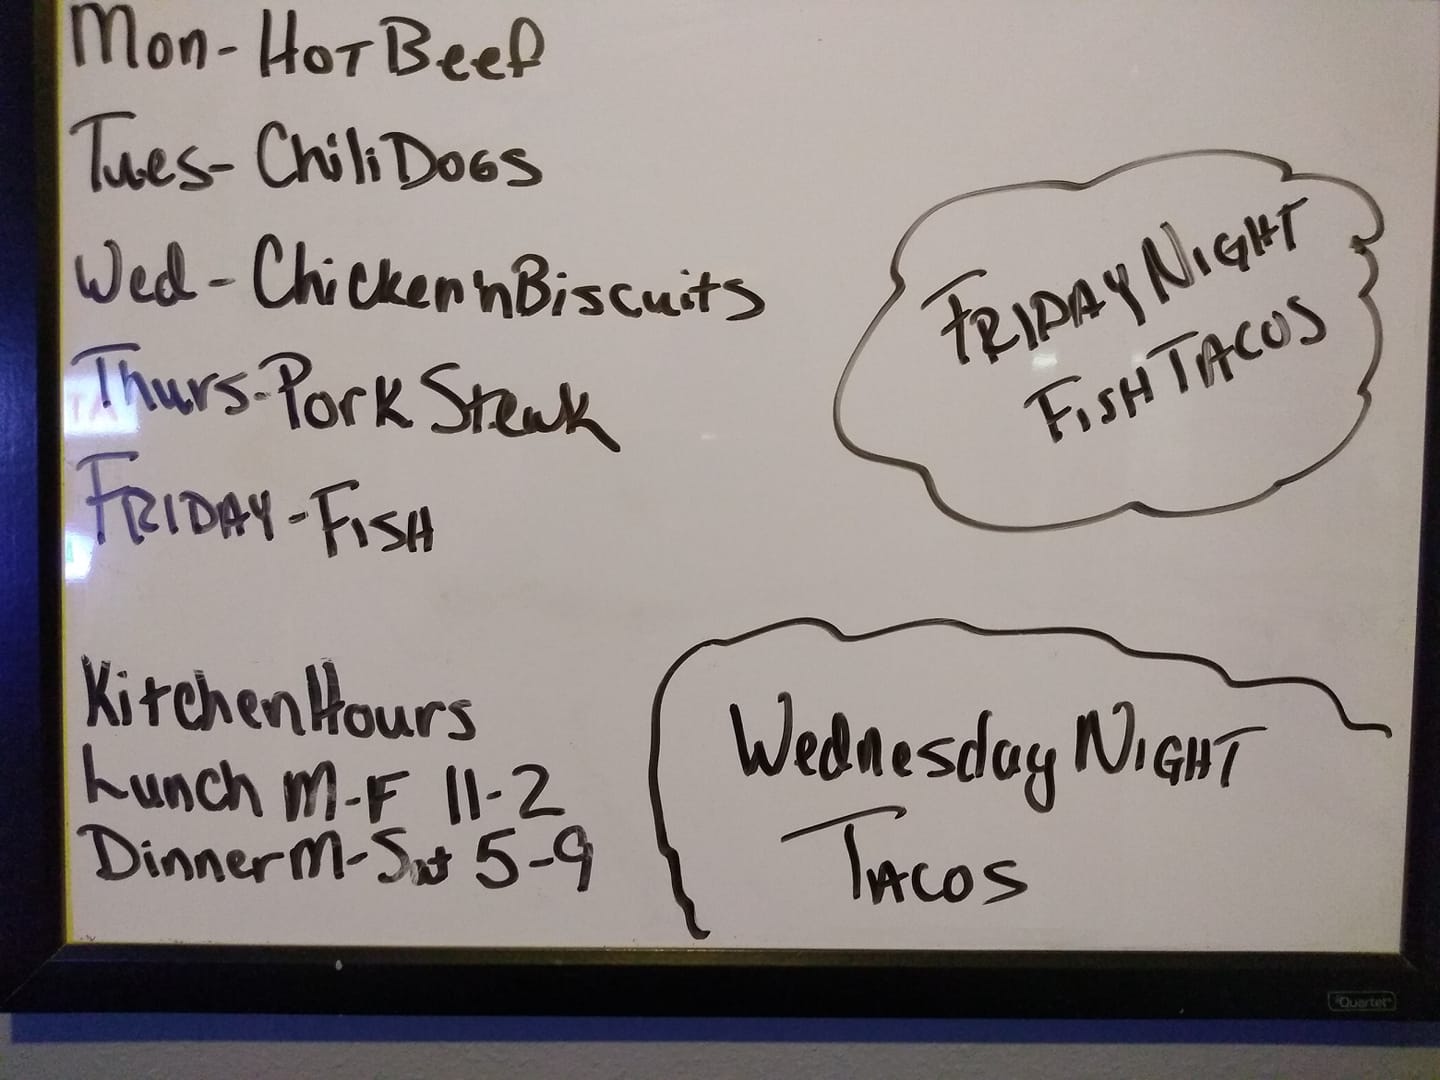 Mon- HOT Beef
Tues- Chili DOGS
Wed - Chicken 'n Biscuits
Thurs- Pork Steak
FRIDAY - FISH
FRIDAY NIGHT
FISH TACOS
Kitchen Hours
Lunch M-F 11-2
Dinner M-Sat 5-9
Wednesday NIGHT
TACOS
Quartet